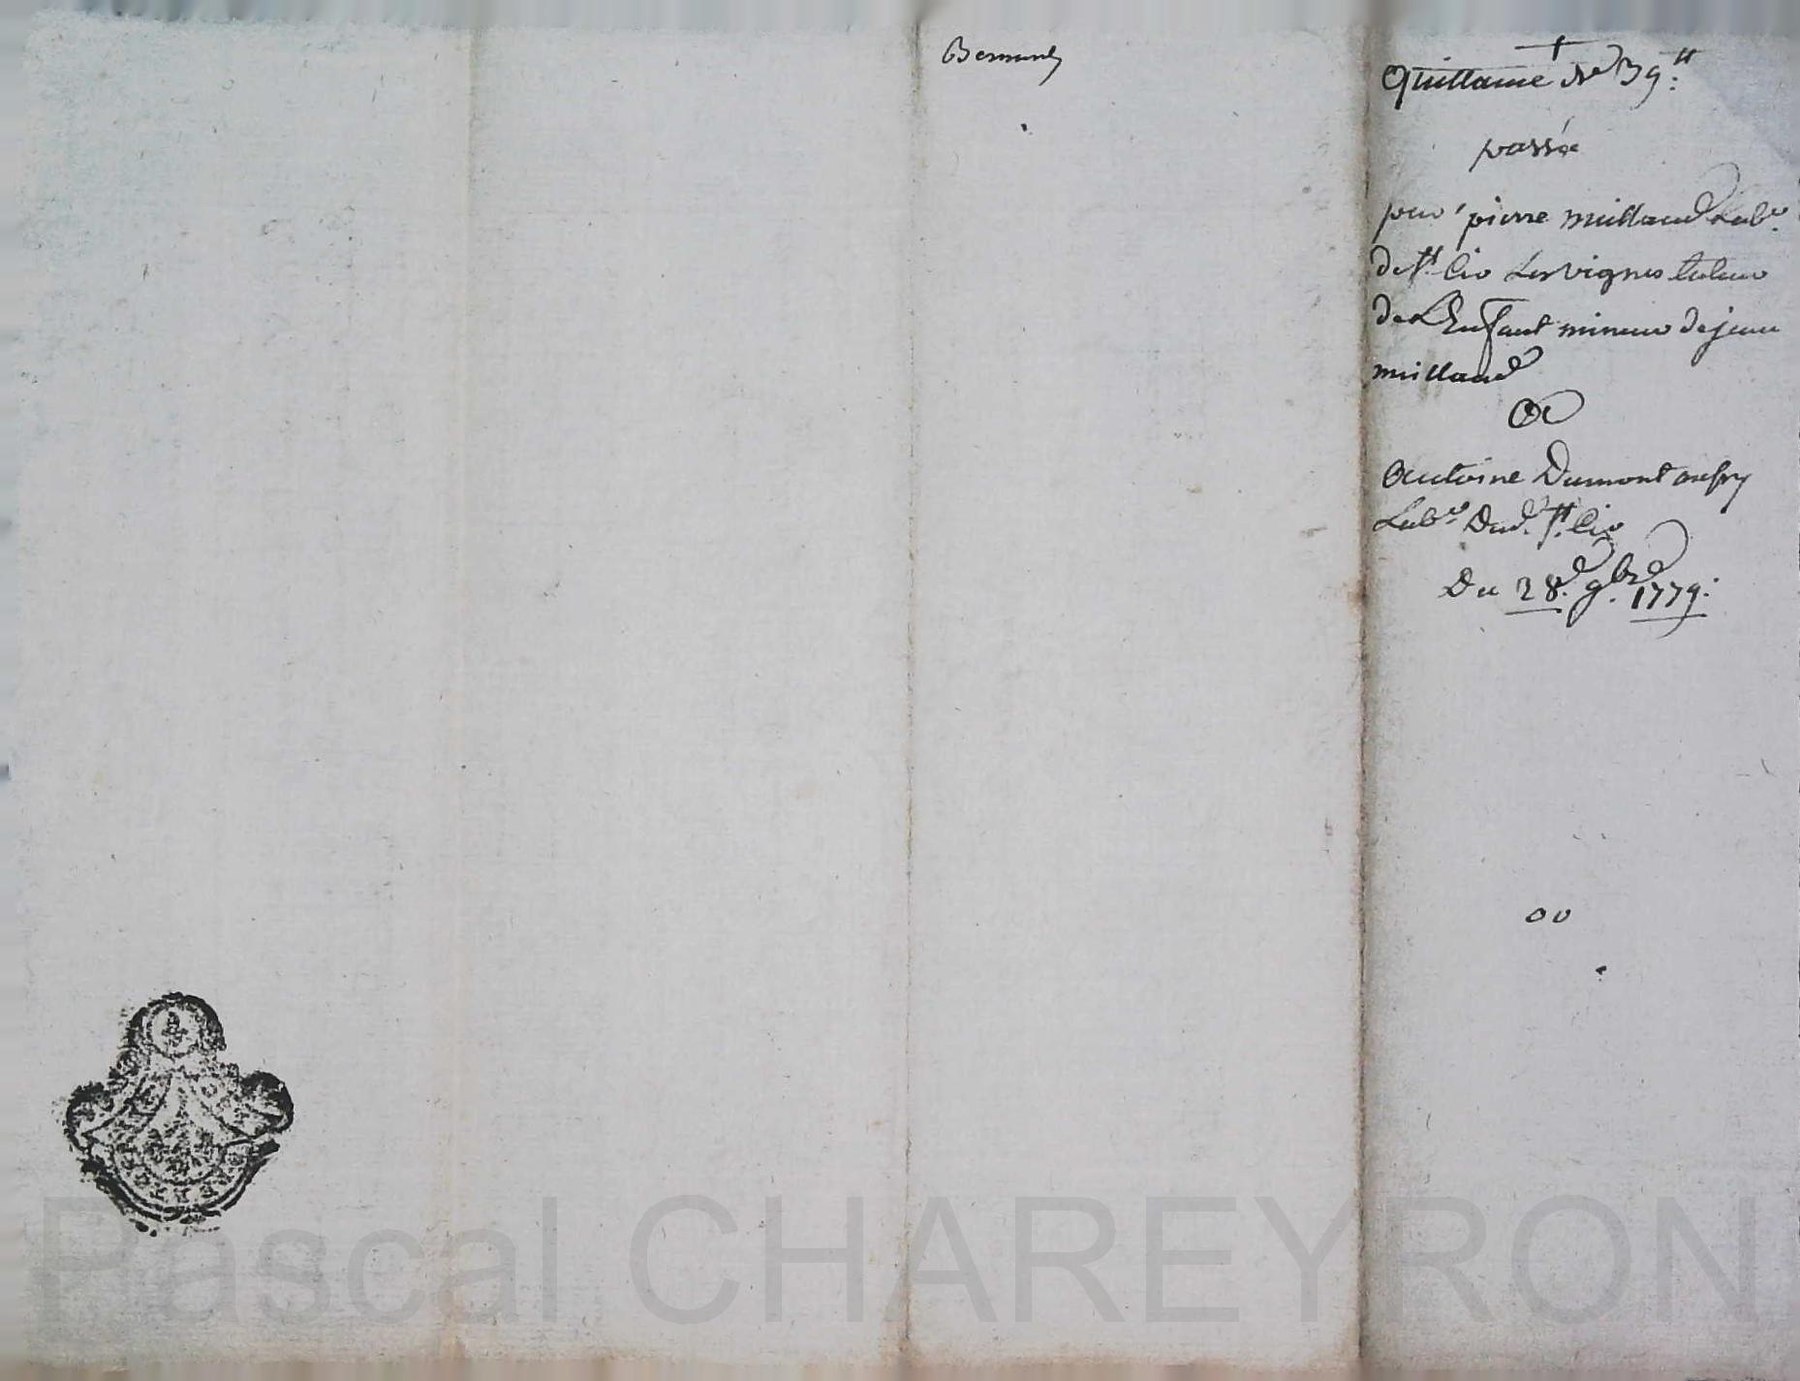 Bernard
Quittance de 39 ⁠tt
passée
par pierre millaud Lab.r
de St. Cir Les Vignes tuteur
de L'Enfant mineur de jean
millaud
A
Antoine Dumont aussy
Lab.r Dud. St. Cir
Du 28.e 9.bre 1779.
Pascal CHAREYRON